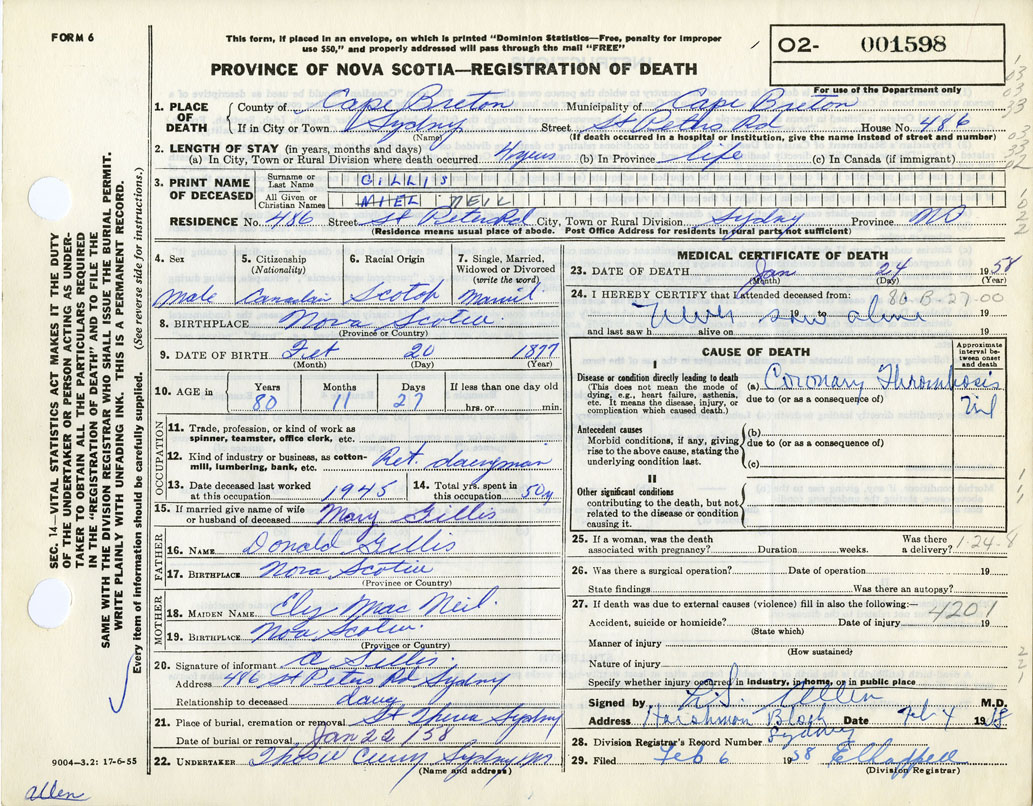 FORM 6
This form, if placed in an envelope, on which is printed "Dominion Statistics—Free, penalty for improper
use $50," and properly addressed will pass through the mail "FREE"
O2- 001598
For use of the Department only
PROVINCE OF NOVA SCOTIA—REGISTRATION OF DEATH
1. PLACE OF DEATH County of Cape Breton Municipality of Cape Breton
If in City or Town Sydney Street St Peters Rd House No. 486
(Name) (If death occurred in a hospital or institution, give the name instead of street and number)
2. LENGTH OF STAY (in years, months and days)
(a) In City, Town or Rural Division where death occurred 4 yrs (b) In Province life (c) In Canada (if immigrant)
3. PRINT NAME OF DECEASED Surname or Last Name GILLIS
All Given or Christian Names NIEL NEIL
RESIDENCE No. 486 Street St Peters Rd City, Town or Rural Division Sydny Province
(Residence means usual place of abode. Post Office Address for residents in rural parts not sufficient)
4. Sex Male
5. Citizenship (Nationality) Canadian
6. Racial Origin Scotch
7. Single, Married, Widowed or Divorced (write the word)
8. BIRTHPLACE Nova Scotia
(Province or Country)
9. DATE OF BIRTH 20 1877
(Month) (Day) (Year)
10. AGE in Years 80 Months 11 Days 27 If less than one day old hrs. or min.
OCCUPATION
11. Trade, profession, or kind of work as spinner, teamster, office clerk, etc.
12. Kind of industry or business, as cotton-mill, lumbering, bank, etc. Ret.
13. Date deceased last worked at this occupation 1945
14. Total yrs. spent in this occupation 50 y
15. If married give name of wife or husband of deceased Mary Gillis
FATHER
16. NAME Donald Gillis
17. BIRTHPLACE Nova Scotia
(Province or Country)
MOTHER
18. MAIDEN NAME Mac Neil
19. BIRTHPLACE Noa Scotia
(Province or Country)
20. Signature of informant A Gillis
Address 486 St Peters Rd Sydny
Relationship to deceased daug
21. Place of burial, cremation or removal Sydny
Date of burial or removal Jan 22 / 58
22. UNDERTAKER Curry Sydny
(Name and address)
MEDICAL CERTIFICATE OF DEATH
23. DATE OF DEATH Jan 24 1958
(Month) (Day) (Year)
24. I HEREBY CERTIFY that I attended deceased from: 80-B-27-00
Never saw alive
19 to 19
and last saw h alive on 19
CAUSE OF DEATH
Approximate interval between onset and death
I
Disease or condition directly leading to death
(This does not mean the mode of dying, e.g., heart failure, asthenia, etc. It means the disease, injury, or complication which caused death.)
(a) Coronary Thrombosis
due to (or as a consequence of)
Antecedent causes
Morbid conditions, if any, giving rise to the above cause, stating the underlying condition last.
(b)
due to (or as a consequence of)
(c)
II
Other significant conditions
contributing to the death, but not related to the disease or condition causing it.
25. If a woman, was the death associated with pregnancy? Duration weeks. Was there a delivery? 1-24-8
26. Was there a surgical operation? Date of operation 19
State findings Was there an autopsy?
27. If death was due to external causes (violence) fill in also the following:—
4201
Accident, suicide or homicide? Date of injury 19
(State which)
Manner of injury
(How sustained)
Nature of injury
Specify whether injury occurred in industry, in home, or in public place
Signed by M.D.
Address Block Sydney Date Feb 4 1958
28. Division Registrar's Record Number
29. Filed Feb 6 1958
(Division Registrar)
SEC. 14—VITAL STATISTICS ACT MAKES IT THE DUTY
OF THE UNDERTAKER OR PERSON ACTING AS UNDER-
TAKER TO OBTAIN ALL THE PARTICULARS REQUIRED
IN THE "REGISTRATION OF DEATH" AND TO FILE THE
SAME WITH THE DIVISION REGISTRAR WHO SHALL ISSUE THE BURIAL PERMIT.
WRITE PLAINLY WITH UNFADING INK. THIS IS A PERMANENT RECORD.
Every item of information should be carefully supplied. (See reverse side for instructions.)
9004—3.2: 17-6-55
allen